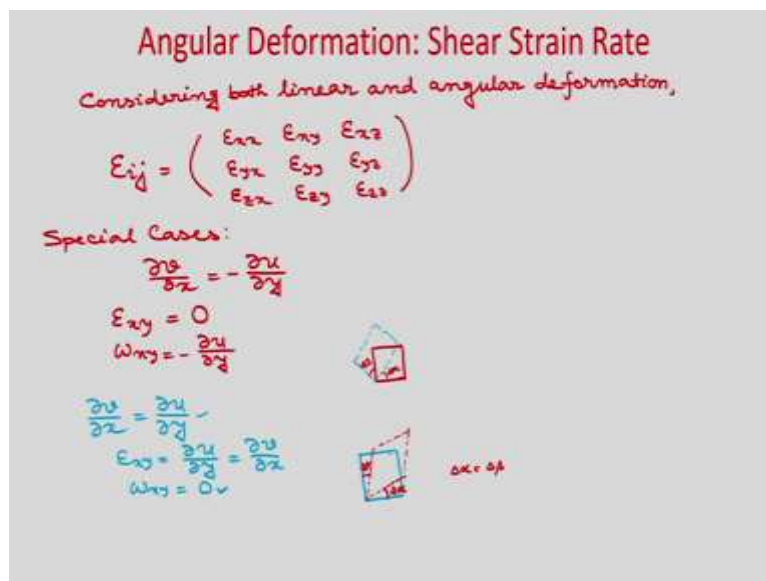 Angular Deformation: Shear Strain Rate
Considering both linear and angular deformation,
εij = ( εxx εxy εxz
εyx εyy εyz
εzx εzy εzz )
Special Cases:
∂v/∂x = - ∂u/∂y
εxy = 0
ωxy = - ∂u/∂y
∂v/∂x = ∂u/∂y
εxy = ∂u/∂y = ∂v/∂x
ωxy = 0
Δα = Δβ